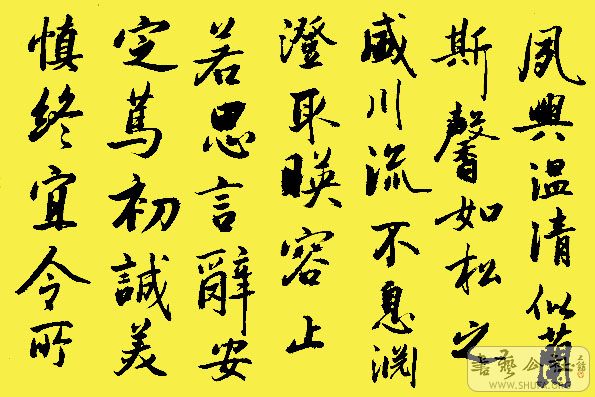 夙興温清似蘭
斯馨如松之
盛川流不息淵
澄取暎容止
若思言辭安
定篤初誠美
慎終宜令所
書藝公社
WWW.SHUFA.ORG